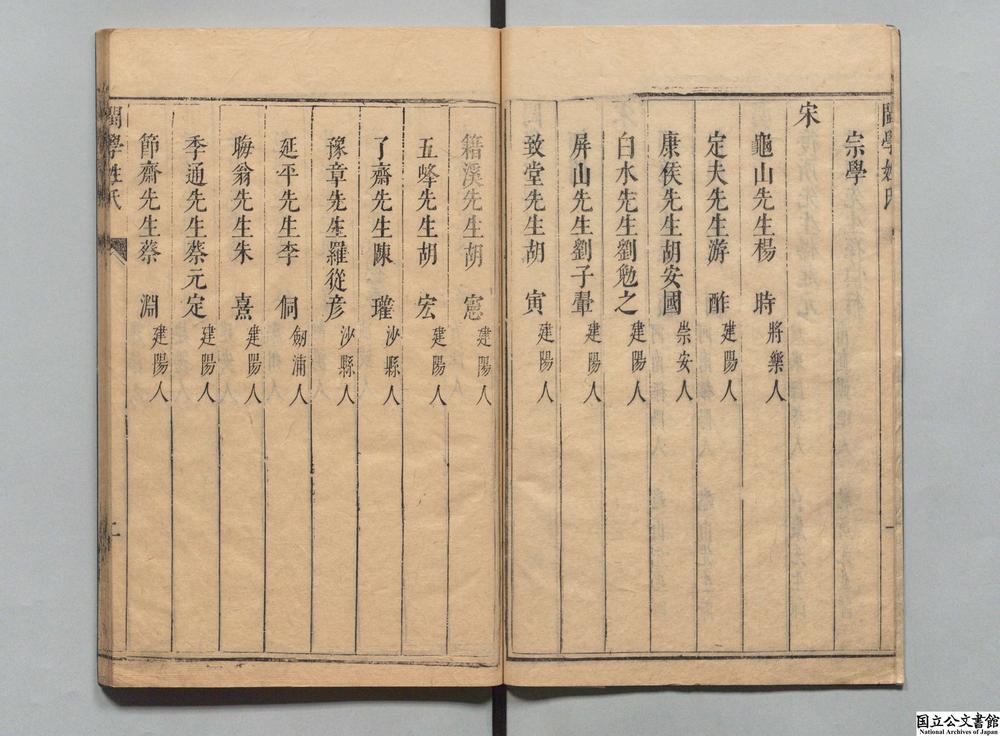 閩學姓氏
宗學
宋
龜山先生楊　時　將樂人
定夫先生游　酢　建陽人
康侯先生胡安國　崇安人
白水先生劉勉之　建陽人
屏山先生劉子翬　建陽人
致堂先生胡　寅　建陽人
一
籍溪先生胡　憲　建陽人
五峰先生胡　宏　建陽人
了齋先生陳　瓘　沙縣人
豫章先生羅從彥　沙縣人
延平先生李　侗　劒浦人
晦翁先生朱　熹　建陽人
季通先生蔡元定　建陽人
節齋先生蔡　淵　建陽人
閩學姓氏
二
国立公文書館
National Archives of Japan